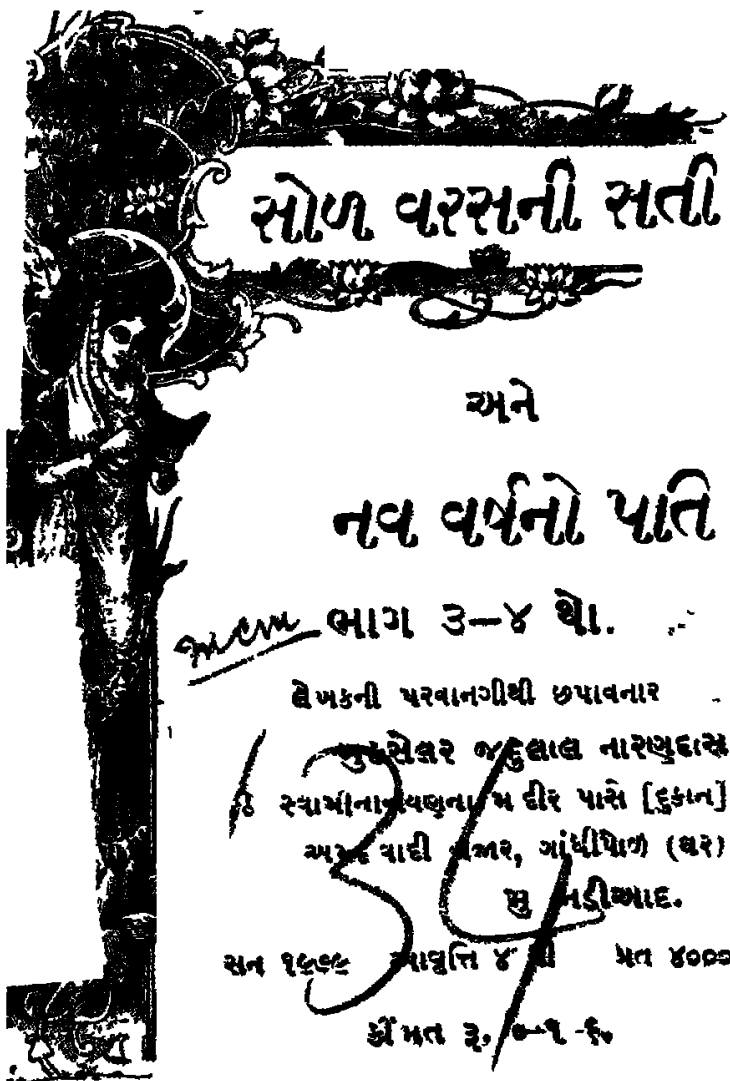 સોળ વરસની સતી
અને
નવ વર્ષનો પતિ
ભાગ ૩–૪ થો.
લેખકની પરવાનગીથી છપાવનાર
બુકસેલર જદુલાલ નારણદાસ
ઠે સ્વામીનારાયણના મંદીર પાસે [દુકાન]
અમદાવાદી બજાર, ગાંધીપોળ (ઘર)
મુ નડીઆદ.
સન ૧૯૯૯ આવૃત્તિ ૪ થી પ્રત ૪૦૦૦
કીંમત રૂ, ૦–૧-૬.
134